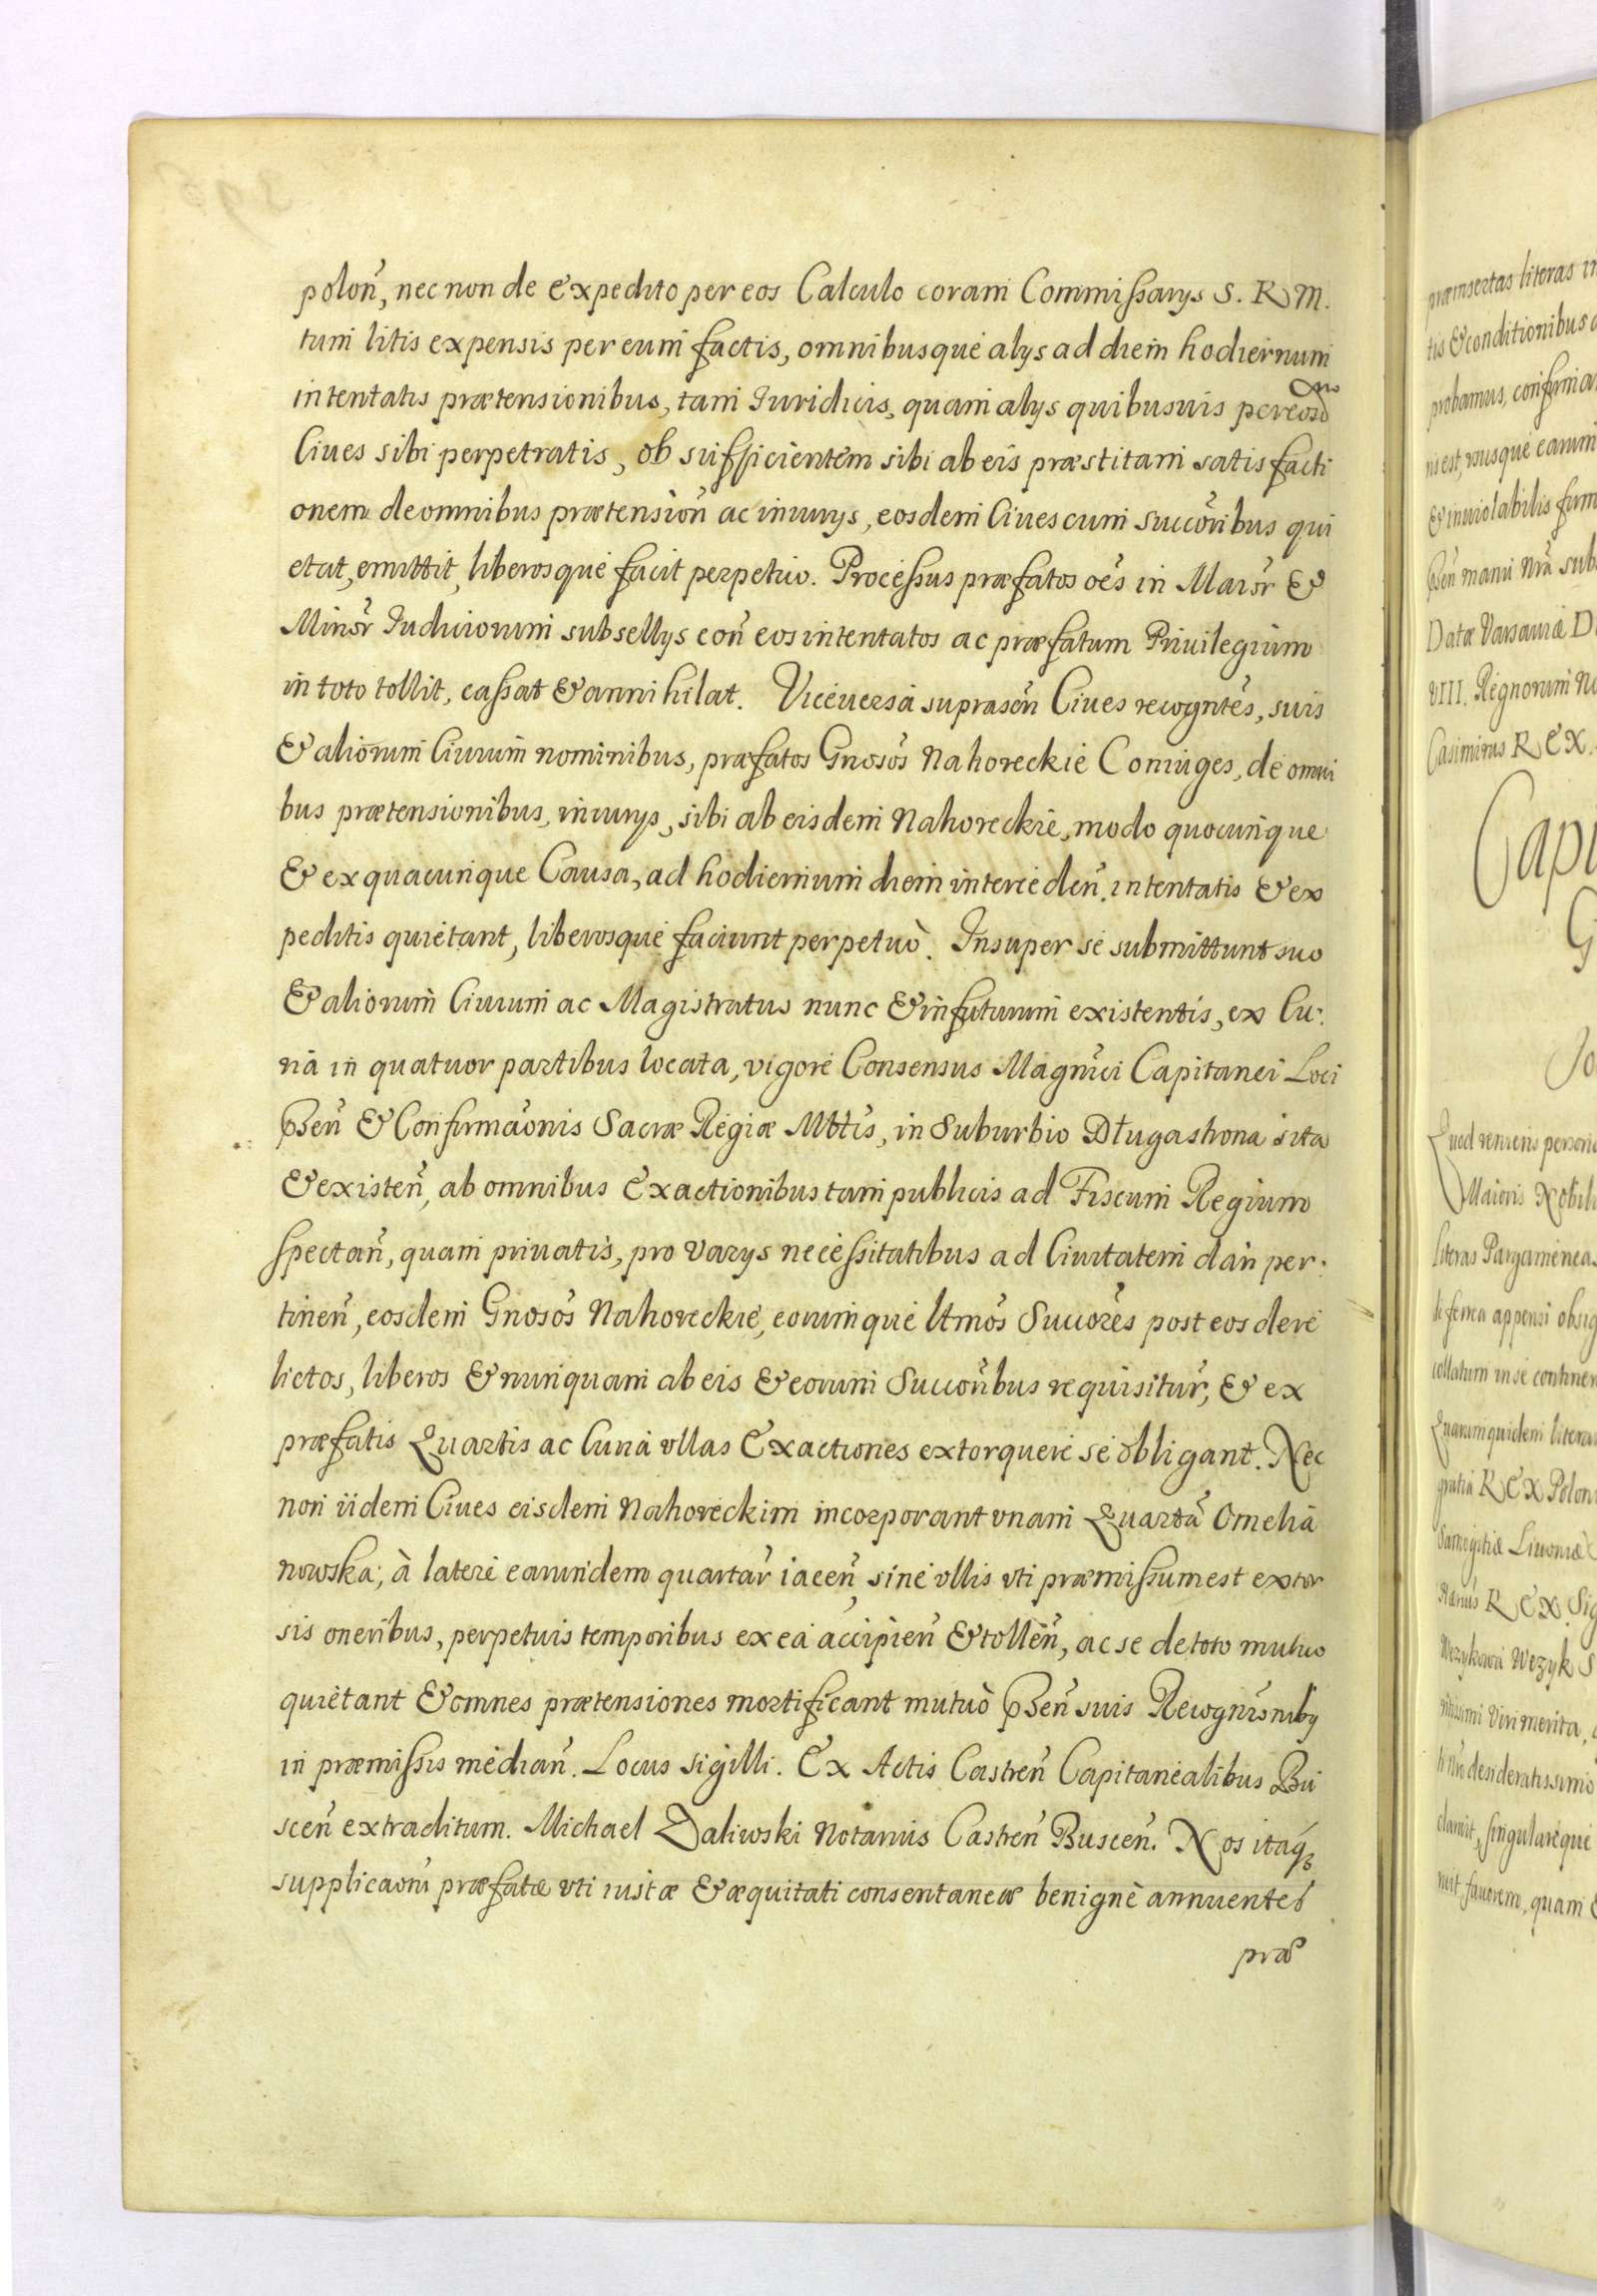 polon̄, nec non de Expedito per eos Calculo coram Commissarys S. R M.
tum litis expensis per eum factis, omnibusque alys ad diem hodiernum
intentatis prætensionibus, tam Iuridicis, quam alys quibusuis per eosd
Ciues sibi perpetratis, ob sufficientem sibi ab eis præstitam satisfacti
onem de omnibus prætension̄ ac iniurys, eosdem Ciues cum succōribus qui
etat, emittit, liberosque facit perpetuo. Processus præfatos oēs in Maior̄ &
Minor̄ Iudiciorum subsellys con̄ eos intentatos ac præfatum Priuilegium
in toto tollit, cassat & annihilat. Viceuersa suprascn̄ Ciues recogntēs, suis
& aliorum Ciuium nominibus, præfatos Gnosōs Nahoreckie Coniuges, de omni
bus prætensionibus, iniurys, sibi ab eisdem Nahoreckie, modo quocunque
& ex quacunque Causa, ad hodiernum diem interceden̄. intentatis & ex
peditis quietant, liberosque faciunt perpetuò. Insuper se submittunt suo
& aliorum Ciuium ac Magistratus nunc & in futurum existentis, ex Cu:
ria in quatuor partibus locata, vigore Consensus Magnīci Capitanei Loci
Psen̄ & Confirmāonis Sacræ Regiæ Mttīs, in Suburbio Długastrona sita
& existen̄, ab omnibus Exactionibus tam publicis ad Fiscum Regium
spectan̄, quam priuatis, pro varys necessitatibus ad Ciuitatem dan̄ per:
tinen̄, eosdem Gnosōs Nahoreckie, eorumque ltmōs Succorēs post eos dere
lictos, liberos & nunquam ab eis & eorum Succorībus requisitur̄, & ex
præfatis Quartis ac Curia vllas Exactiones extorquere se obligant. Nec
non iidem Ciues eisdem Nahoreckim incorporant vnam Quartā Omelia
nowska, à latere earundem quartar̄ iacen̄, sine vllis vti præmissum est extor
sis oneribus, perpetuis temporibus ex ea accipien̄ & tollen̄, ac se de toto mutuo
quietant & omnes prætensiones mortificant mutuò Psen̄ suis Recognīsniby
in præmissis median̄. Locus sigilli. Ex Actis Castren̄ Capitanealibus Bu
scen̄ extraditum. Michael Zaliwski Notarius Castren̄ Buscen̄. Nos itaq́
supplicaōni præfatæ vti iustæ & æquitati consentaneæ benignè annuentes
præ
præinsertas literas in
tis & conditionibus
probamus, confirma
is est, vsque earum
& inuiolabilis firm
Psen̄ manu Nrā sub
Datæ Varsauiæ D
VIII. Regnorum N
Casimirus REX.
Capi
G
Jo
Quod veniens person
Maioris Nobil
literas Pargamenea
ferrea appensi obsig
collatum in se continen
Quarum quidem litera
gratia REX Polon
Samogitiæ Liuoniæ
REX Sig
Wezyk S
Viri merita,
desideratissimo
singulareque
fauorem, quam &